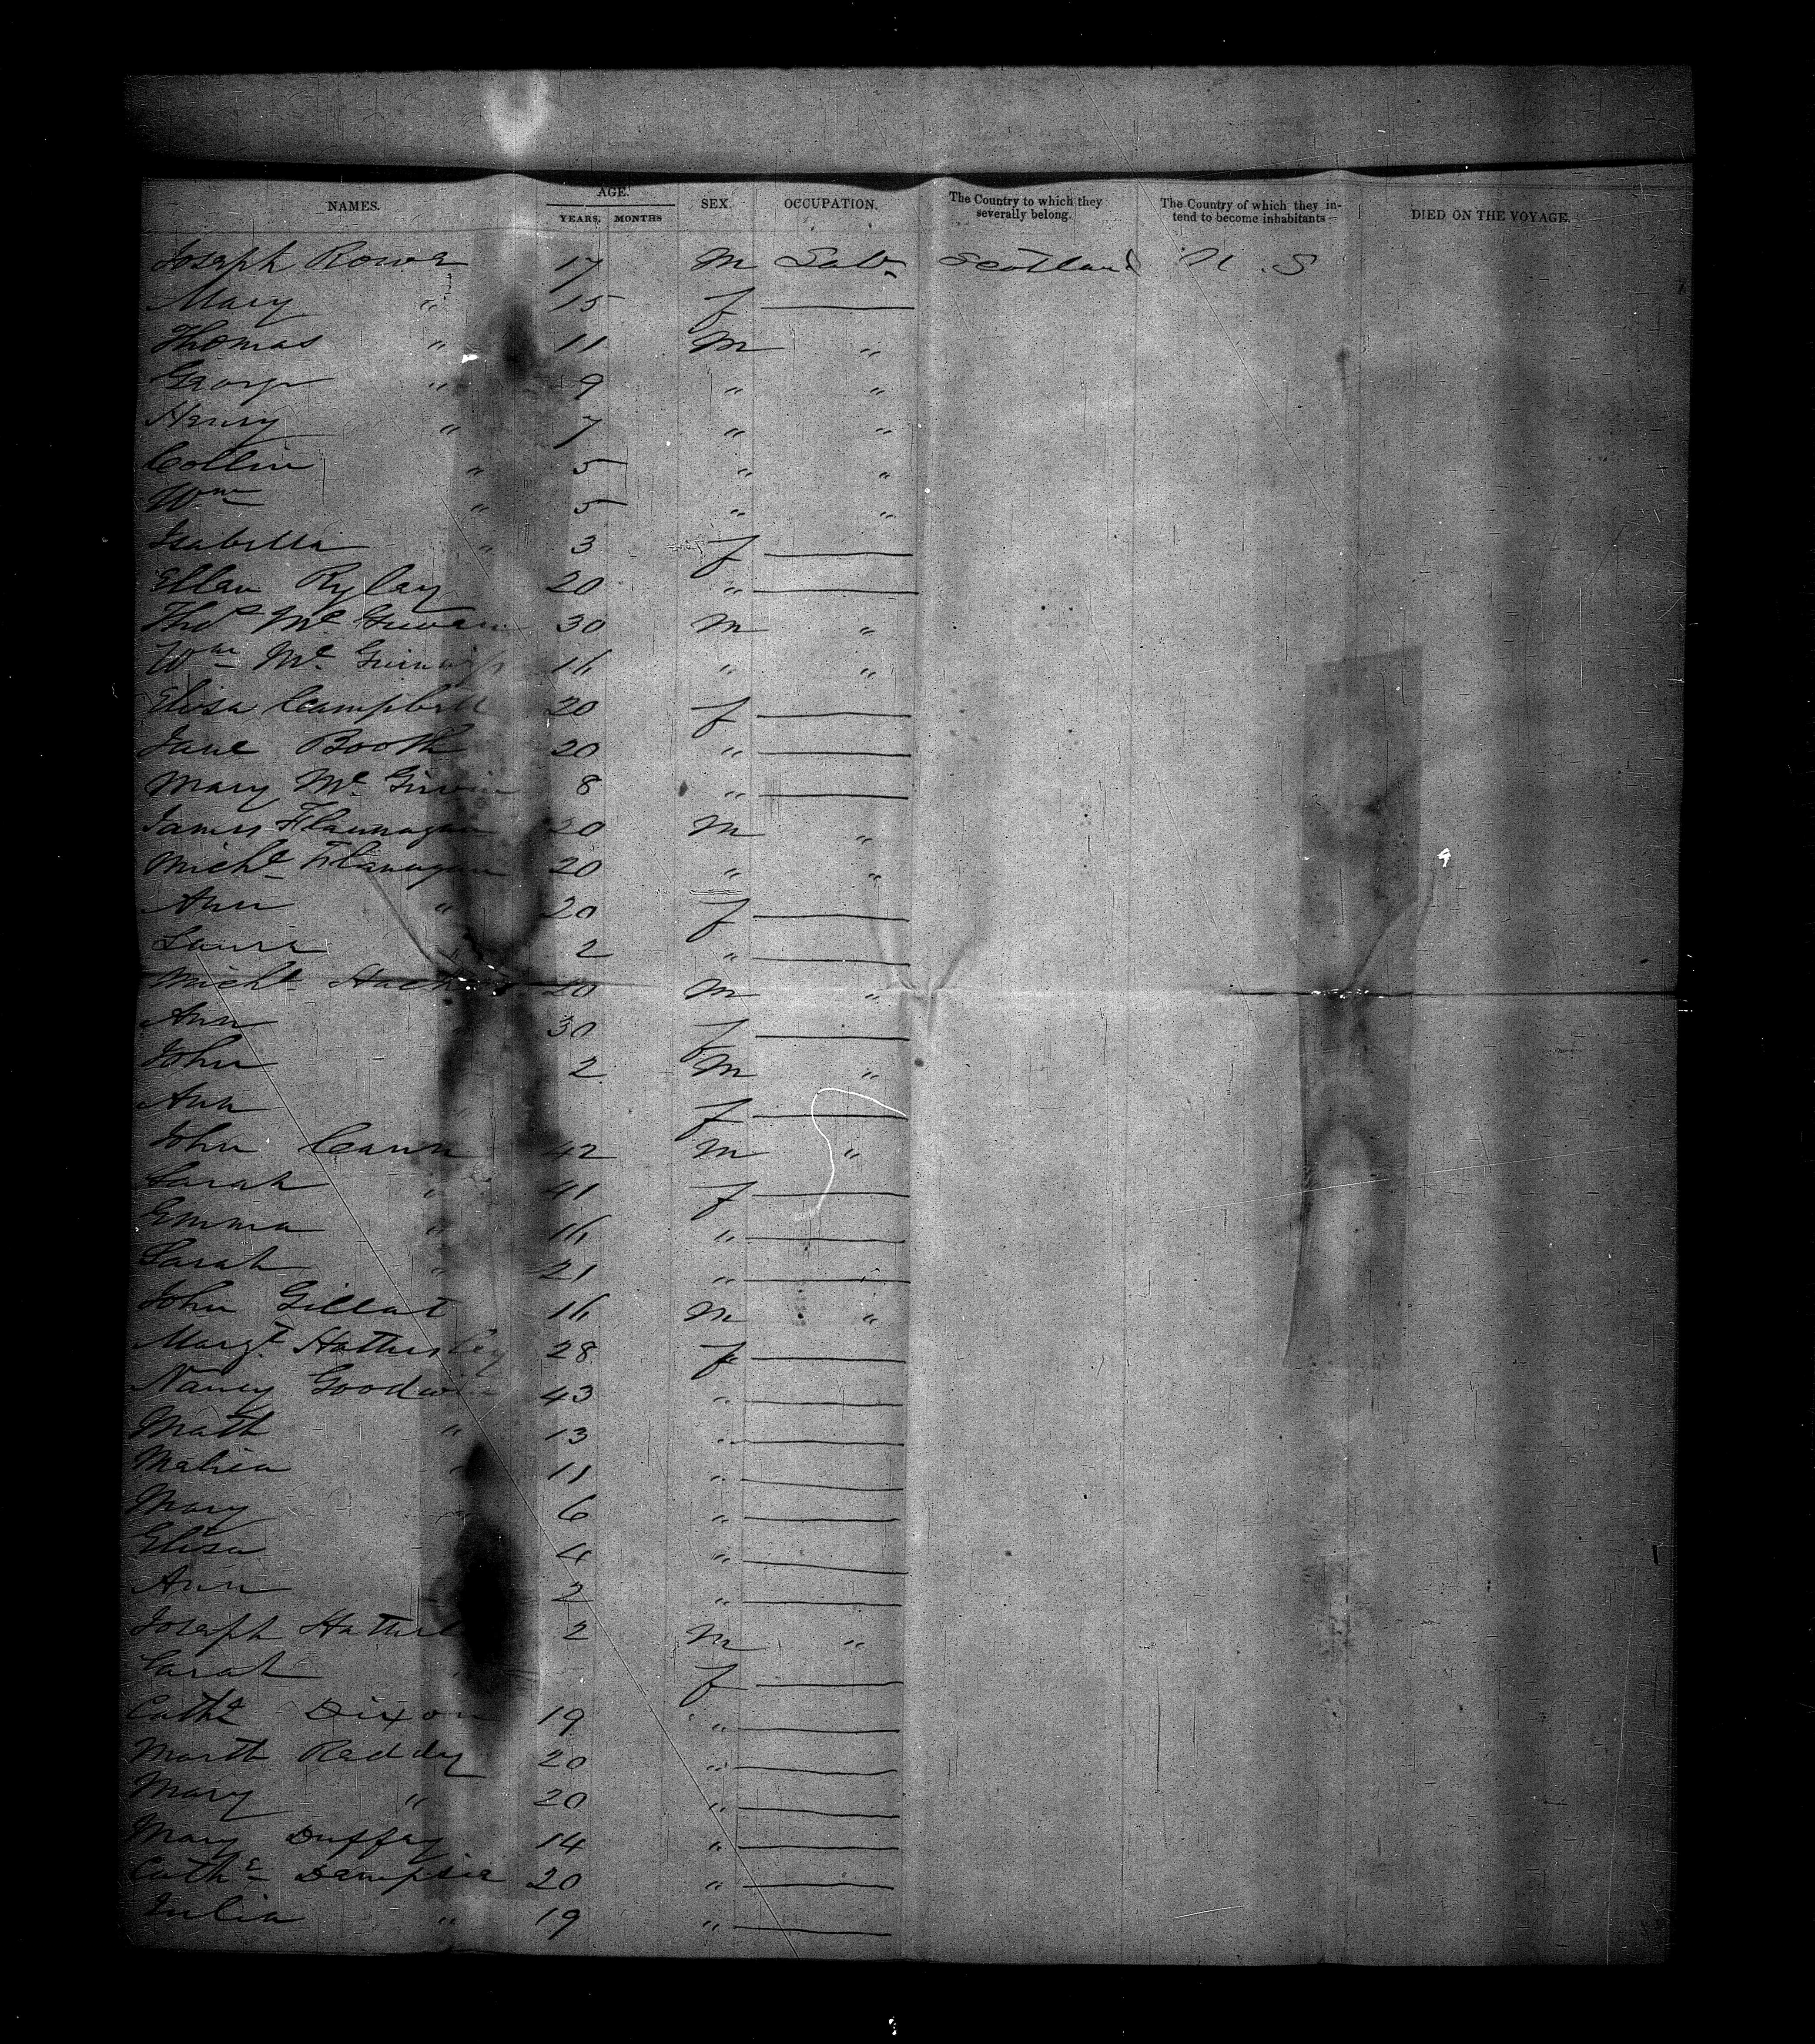 NAMES. AGE. YEARS. MONTHS SEX. OCCUPATION. The Country to which they severally belong. The Country of which they intend to become inhabitants— DIED ON THE VOYAGE.
Joseph Rower 17 M Labr Scotland U.S
Mary " 15 f
Thomas " 11 M "
George " 9 " "
Henry " 7 " "
Collin " 5 " "
Wm " 5 " "
Isabella " 3 f
Ellen Ryley 20 "
Thos Mc 30 M "
Wm Mc 16 " "
Elisa Campbell 20 f
Jane Booth 20 "
Mary Mc 8 "
James Flannagan 20 M "
Michl Flanagan 20 " "
Ann " 20 f
Laura 2 "
Michl 20 M "
Ann 30 f
John 2 M "
Ann f
John Cann 42 M "
Sarah " 41 f
Emma " 16 "
Sarah " 21 "
John Gillat 16 M "
Margt Hattersley 28 f
Nancy Goodwin 43 "
Math " 13 "
11 "
Mary " 6 "
Elisa 4 "
Ann 2 "
Joseph 2 M "
Sarah f
Cathe Dixon 19 "
Marth Reddy 20 "
Mary " 20 "
Mary Duffey 14 "
Cathe Dempsie 20 "
Julia " 19 "